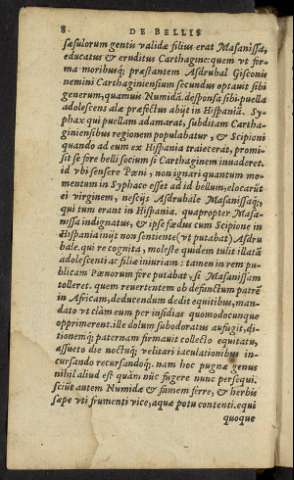 8 DE BELLIS
sæsulorum gentis validæ filius erat Masanissa,
educatus & eruditus Carthagine: quem vt for
ma moribusq; præstantem Asdrubal Gisconis
nemini Carthaginiensium secundus optauit sibi
generum, quamuis Numidã. desponsa sibi puella
adolescens aliæ præfectus abijt in Hispaniã. Sy-
phax qui puellam adamarat, subditam Cartha-
giniensibus regionem populabatur, & Scipioni
quando ad eum ex Hispania traiecerat, promi-
sit se fore belli socium si Carthaginem inuaderet.
id vbi sensere Pœni, non ignari quantum mo-
mentum in Syphace esset ad id bellum, elocarũt
ei virginem, nescijs Asdrubale Masanissaq;,
qui tum erant in Hispania. quapropter Masa-
nissa indignatus, & ipse fœdus cum Scipione in
Hispania inijt non sentiente (vt putabat) Asdru
bale. qui re cognita, moleste quidem tulit illatã
adolescenti ac filiæ iniuriam: tamen in rem pu-
blicam Pœnorum fore putabat, si Masanissam
tolleret. quem reuertentem ob defunctum patrẽ
in Africam, deducendum dedit equitibus, man-
dato vt clàm eum per insidias quomodocunque
opprimerent. ille dolum subodoratus aufugit, di-
tionemq; paternam firmauit collecto equitatu,
assueto die noctuq; velitari iaculationibus in-
cursando recursandoq;. nam hoc pugnæ genus
nihil aliud est quàm nũc fugere nunc persequi.
sciũt autem Numidæ & famem ferre, & herbis
sæpe vti frumenti vice, aquæ potu contenti. equi
quoque